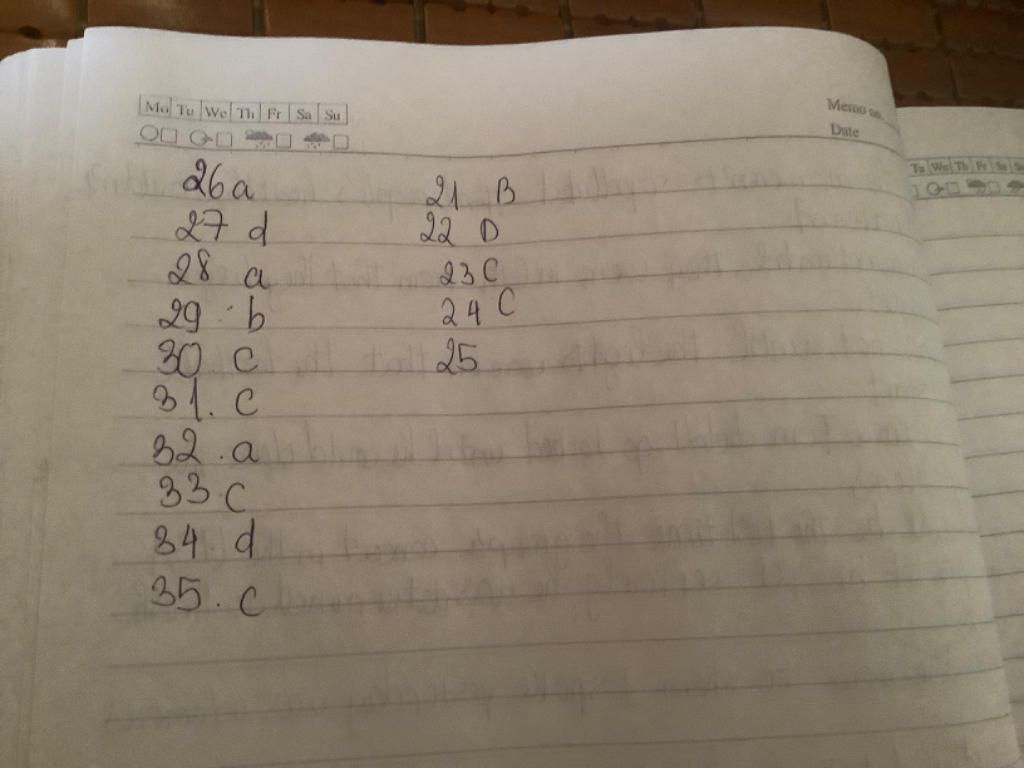 Mo Tu We Th Fr Sa Su
Memo no.
Date
Tu We Th Fr Sa Su
26 a
27 d
28 a
29 b
30 c
31. c
32. a
33. c
34. d
35. c
21 B
22 D
23 C
24 C
25